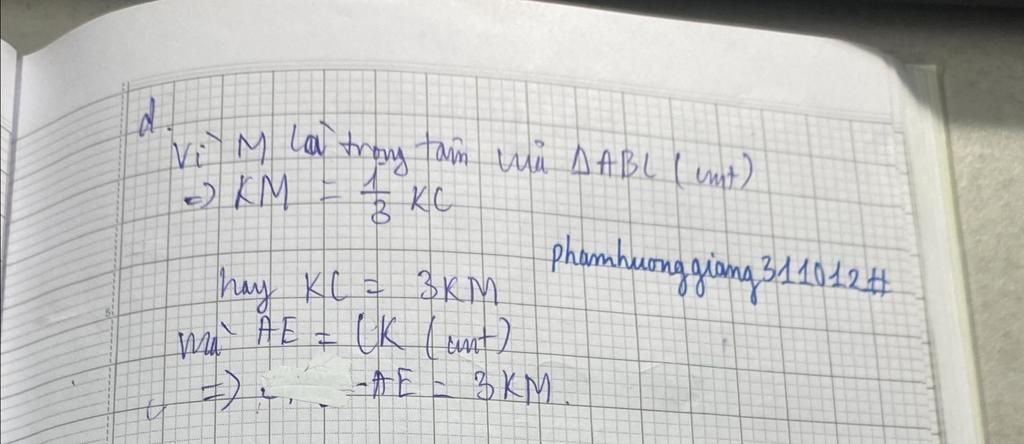 d.
Vì M là trọng tâm của ΔABC (cmt)
=> KM = 1/3 KC
phamhuonggiang311012#
hay KC = 3KM
mà AE = CK (cmt)
=> AE = 3KM.